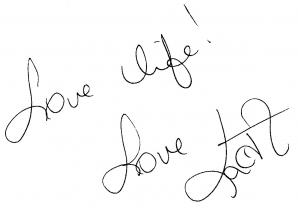 Love life!
Love